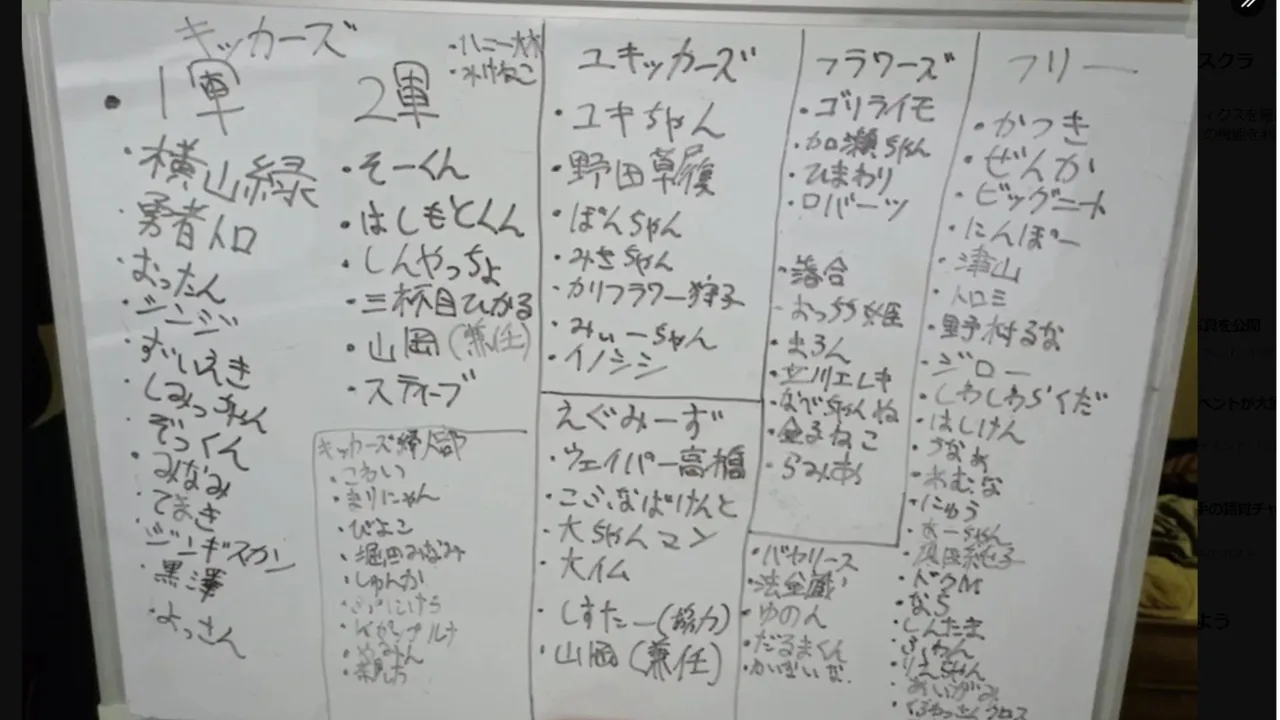 キッカーズ
1軍
横山緑
勇者トロ
おったん
ジンジ
ずいえき
しみっちゃん
ぞっくん
みなみ
てまき
ジンギスカン
黒澤
よっさん
2軍
そーくん
はしもとくん
しんやっちょ
三杯目ひかる
山岡(兼任)
スティーブ
キッカーズ婦人部
こわい
まりにゃん
ぴよこ
堀田みなみ
しゅんか
ユキッカーズ
ユキちゃん
野田草履
ぽんちゃん
みさちゃん
カリフラワー狩子
みぃーちゃん
イノシシ
えぐみーず
ウェイパー高橋
こぶなばけんと
大ちゃんマン
大イム
しすたー(協力)
山岡(兼任)
フラワーズ
ゴリライモ
加瀬ちゃん
ひまわり
ロバーツ
落合
おっちゃ姫
まろん
立川エレキ
なべちゃんね
金子ねこ
らみあ
バヤリース
法金蔵
ゆのん
だるまくん
フリー
かつき
ぜんか
ビッグニート
にんぽー
津山
トロミ
野村るな
ジロー
しわしわらくだ
はしけん
うなぁ
おむな
にゅう
ドクM
なら
しんたま
ふわん
りえちゃん